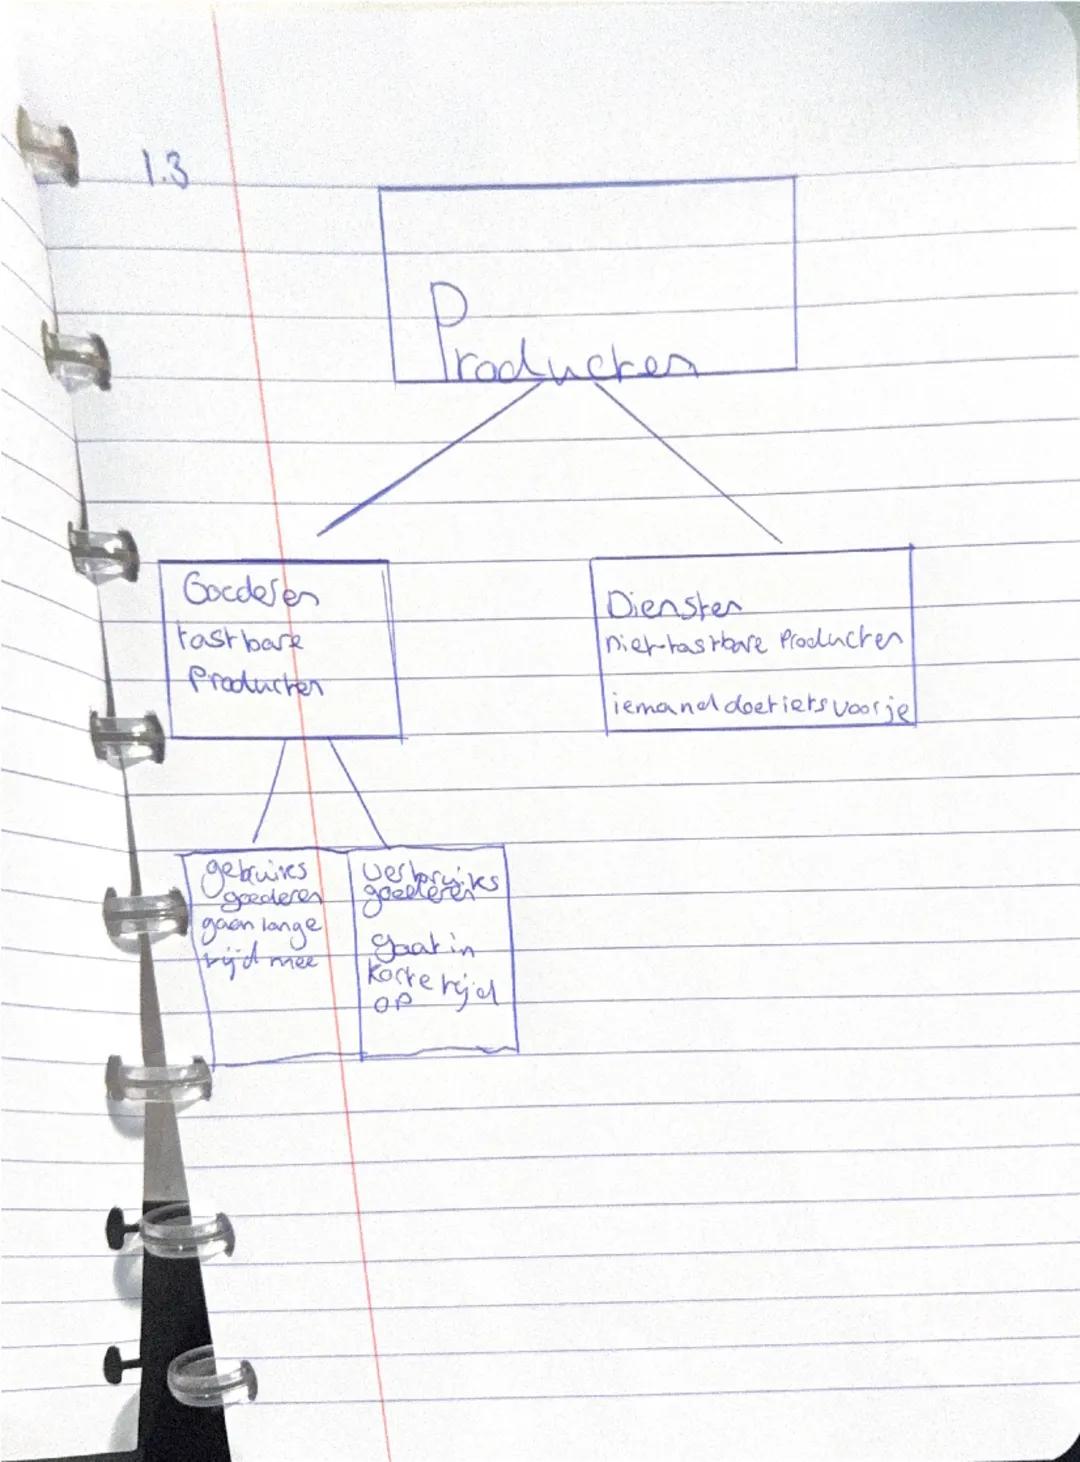 1.3
Producten
Goederen
tastbare
Producten
Diensten
niet-tastbare Producten
iemand doet iets voor je
gebruiks
goederen
gaan lange
tijd mee
verbruiks
goederen
gaat in
korte tijd
op